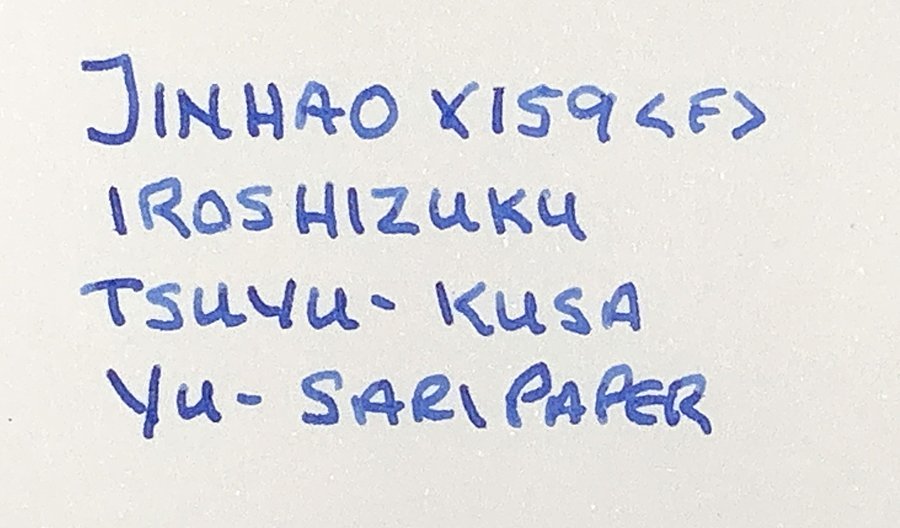 JINHAO X159 <F>
IROSHIZUKU
TSUYU-KUSA
YU-SARI PAPER